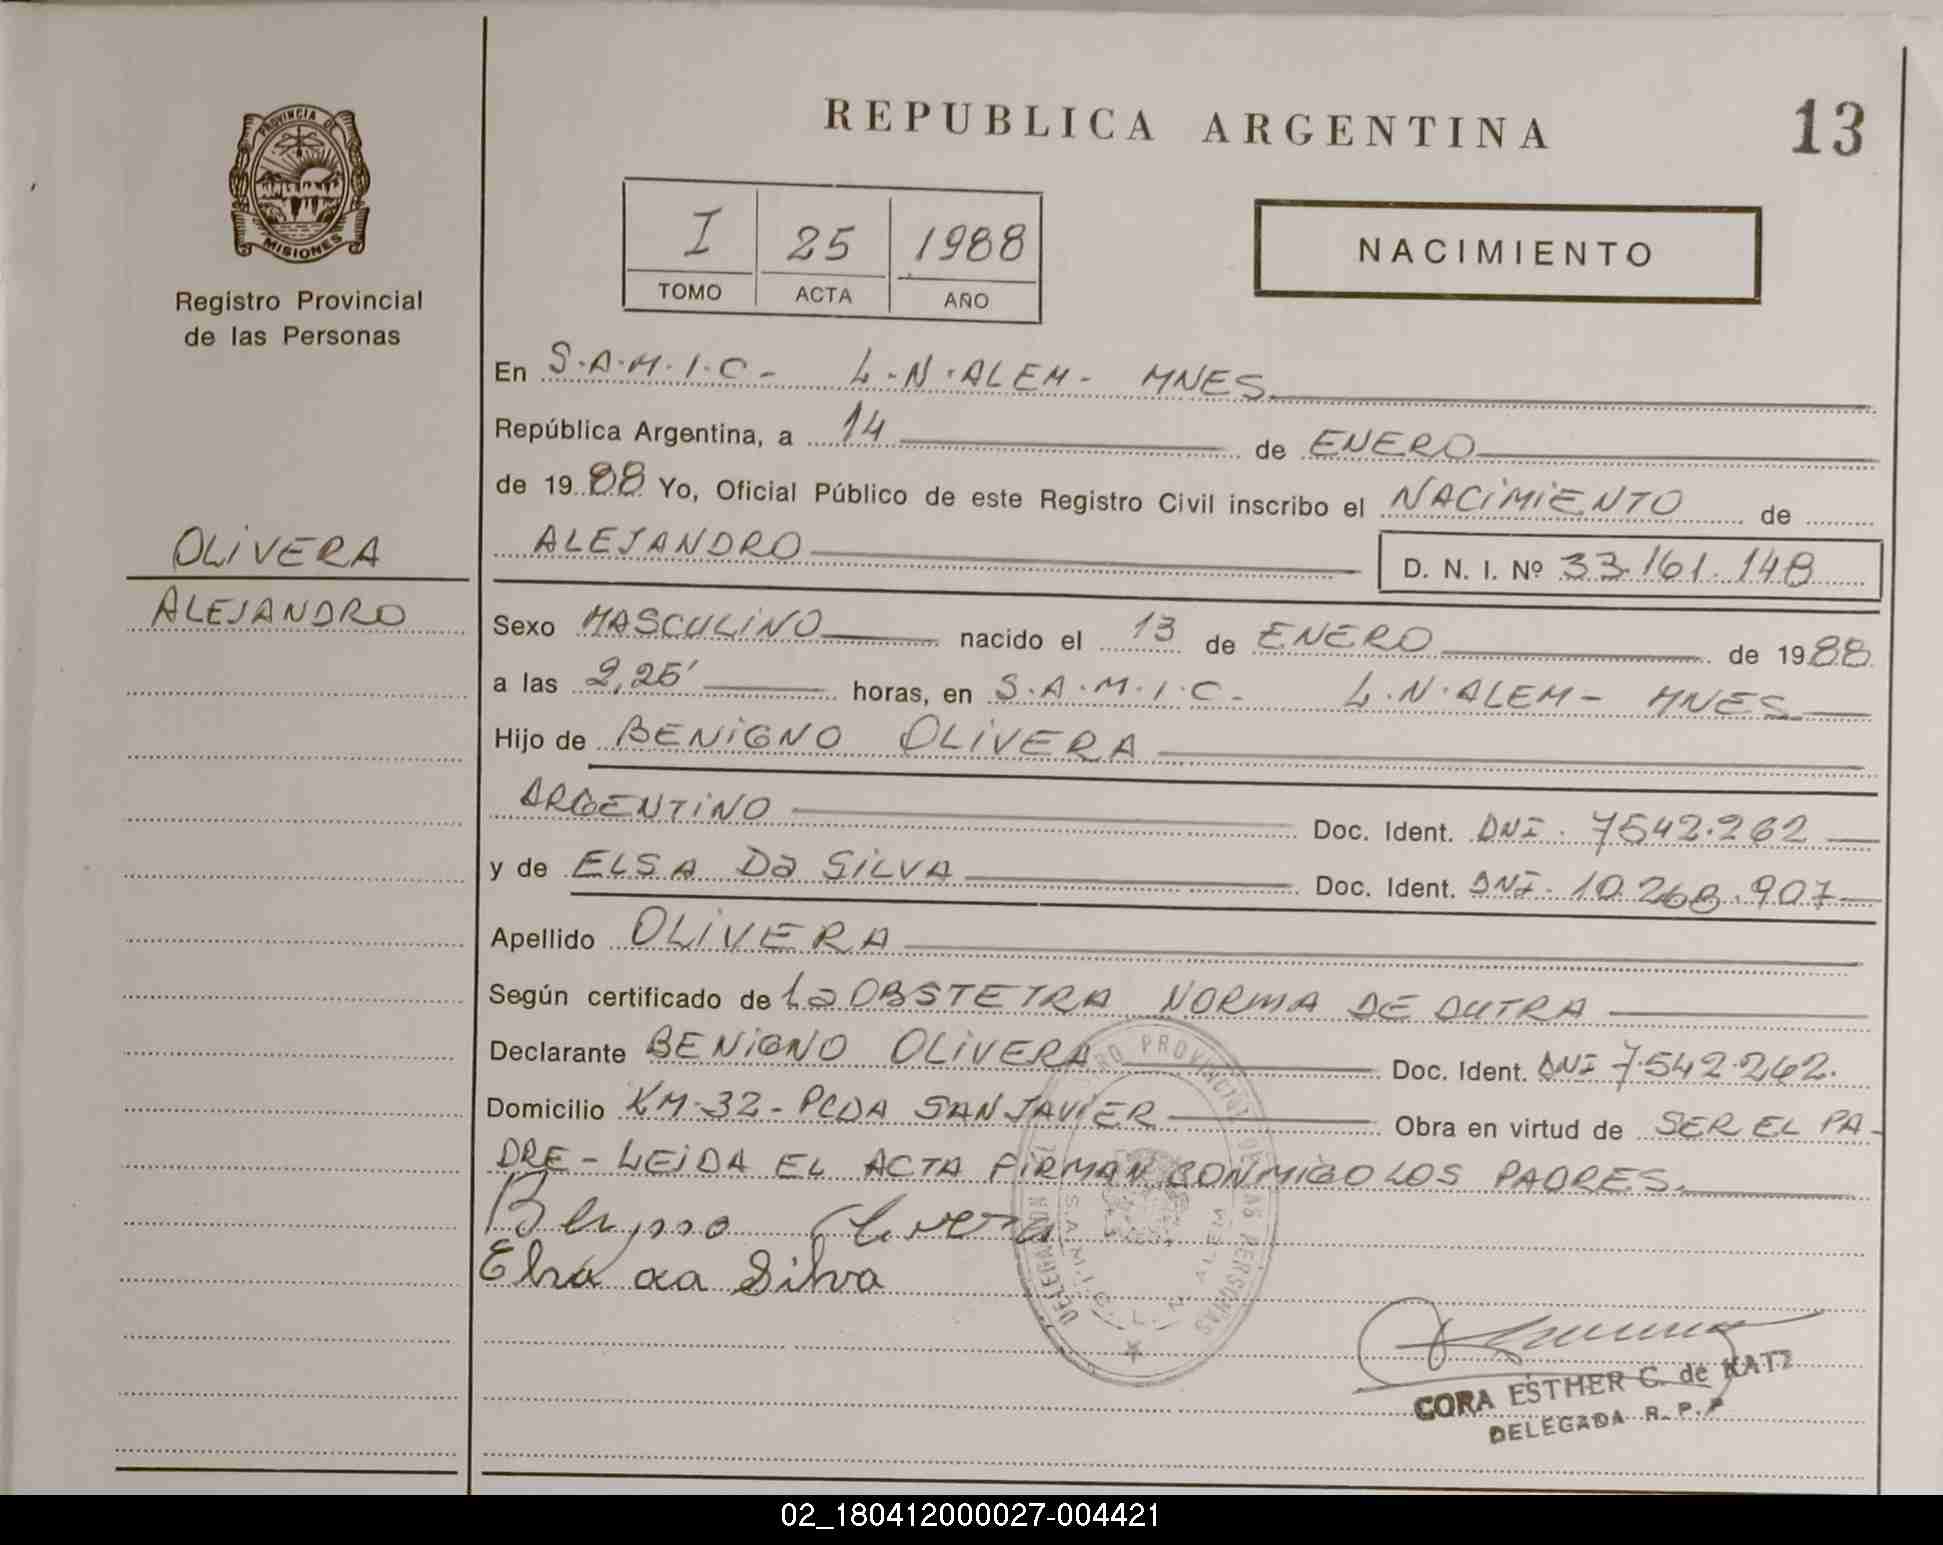 PROVINCIA DE
MISIONES
Registro Provincial
de las Personas
OLIVERA
ALEJANDRO
REPUBLICA ARGENTINA
13
I 25 1988
TOMO ACTA AÑO
NACIMIENTO
En S.A.M.I.C- L.N.ALEM- MNES
República Argentina, a 14 de ENERO
de 1988 Yo, Oficial Público de este Registro Civil inscribo el NACIMIENTO de
ALEJANDRO D. N. I. Nº 33.161.148
Sexo MASCULINO nacido el 13 de ENERO de 1988
a las 2,25' horas, en S.A.M.I.C- L.N.ALEM- MNES
Hijo de BENIGNO OLIVERA
ARGENTINO Doc. Ident. DNI. 7542.262
y de ELSA Da SILVA Doc. Ident. DNI. 10.268.907
Apellido OLIVERA
Según certificado de La OBSTETRA NORMA DE DUTRA
Declarante BENIGNO OLIVERA Doc. Ident. DNI 7.542.262.
Domicilio KM-32-PCDA SAN JAVIER Obra en virtud de SER EL PA-
DRE- LEIDA EL ACTA FIRMAN CONMIGO LOS PADRES.
Elsa da Silva
CORA ESTHER C. de KATZ
DELEGADA R. P. P
02_180412000027-004421